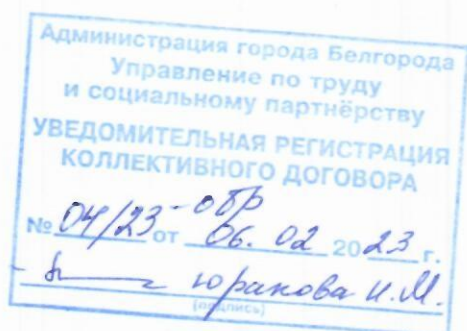 Администрация города Белгорода
Управление по труду
и социальному партнёрству
УВЕДОМИТЕЛЬНАЯ РЕГИСТРАЦИЯ
КОЛЛЕКТИВНОГО ДОГОВОРА
№ 04/23-обр от 06. 02 2023 г.
Юракова И.М.
(подпись)